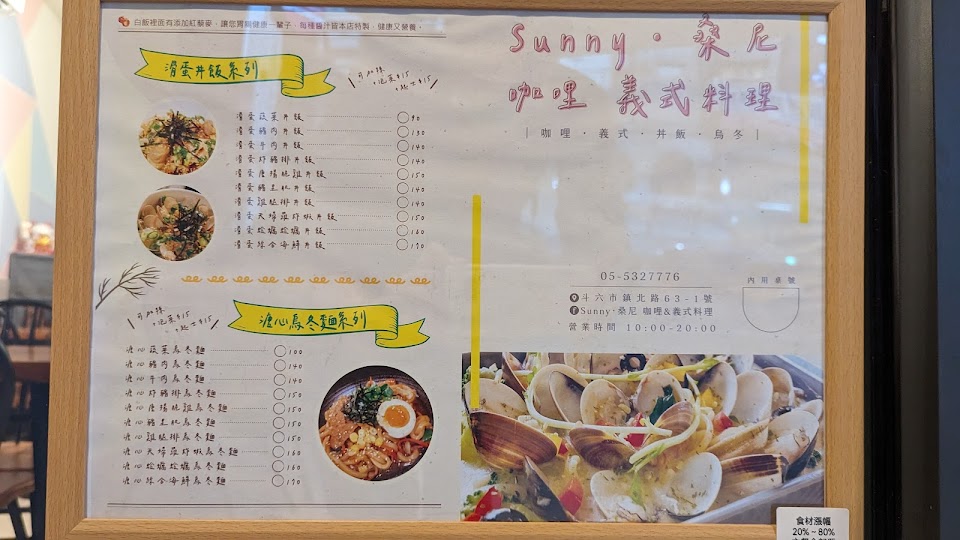 白飯裡面有添加紅藜麥，讓您胃顧健康一輩子，每種醬汁皆本店特製，健康又營養。
滑蛋丼飯系列
可加辣
泡菜$15
起士$15
滑蛋蔬菜丼飯 90
滑蛋豬肉丼飯 130
滑蛋牛肉丼飯 140
滑蛋炸豬排丼飯 140
滑蛋唐揚脆雞丼飯 150
滑蛋豬五花丼飯 140
滑蛋雞腿排丼飯 140
滑蛋天婦羅炸蝦丼飯 150
滑蛋蛤蠣丼飯 160
滑蛋綜合海鮮丼飯 170
溏心烏冬麵系列
可加辣
泡菜$15
起士$15
溏心蔬菜烏冬麵 100
溏心豬肉烏冬麵 140
溏心牛肉烏冬麵 140
溏心炸豬排烏冬麵 150
溏心唐揚脆雞烏冬麵 150
溏心豬五花烏冬麵 150
溏心雞腿排烏冬麵 150
溏心天婦羅炸蝦烏冬麵 160
溏心蛤蠣烏冬麵 160
溏心綜合海鮮烏冬麵 170
Sunny·桑尼
咖哩 義式料理
｜咖哩·義式·丼飯·烏冬｜
05-5327776
斗六市鎮北路63-1號
Sunny·桑尼 咖哩&義式料理
營業時間 10:00-20:00
內用桌號
食材漲幅
20%~80%